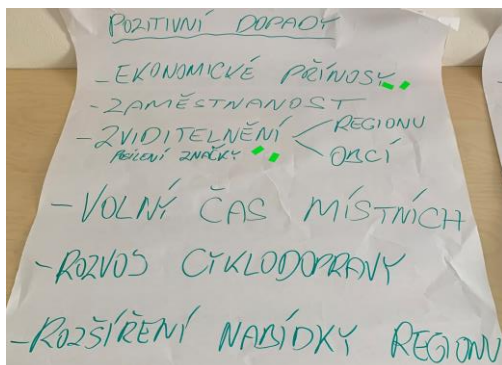 POZITIVNÍ DOPADY
- EKONOMICKÉ PŘÍNOSY
- ZAMĚSTNANOST
- ZVIDITELNĚNÍ < REGIONU
POSÍLENÍ ZNAČKY < OBCÍ
- VOLNÝ ČAS MÍSTNÍCH
- ROZVOJ CYKLODOPRAVY
- ROZŠÍŘENÍ NABÍDKY REGIONU